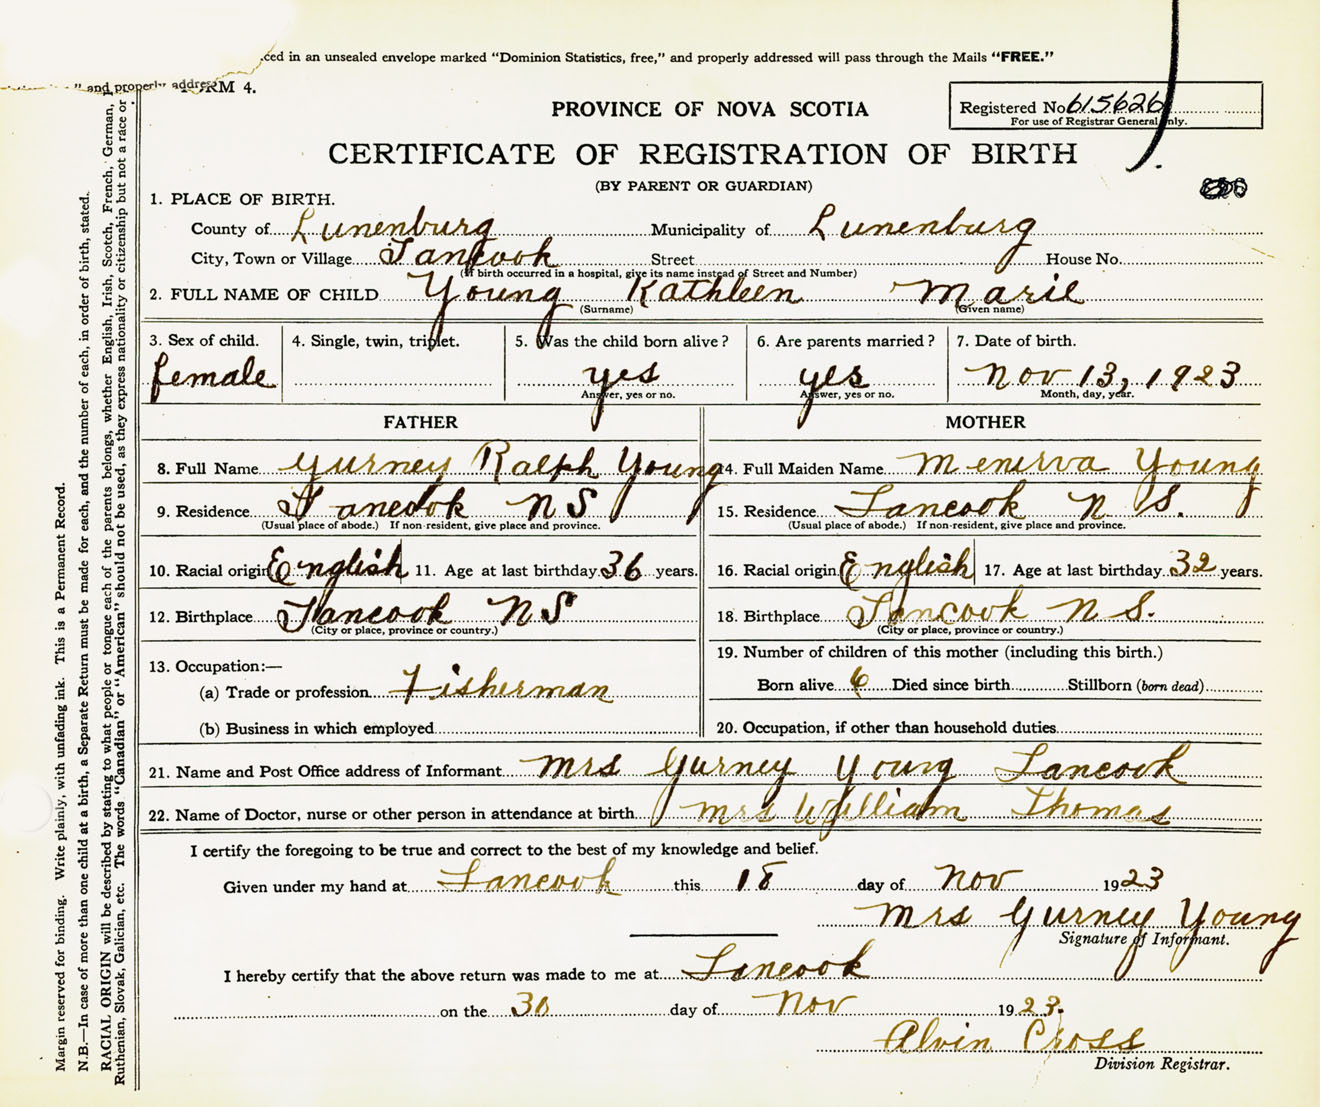 ced in an unsealed envelope marked "Dominion Statistics, free," and properly addressed will pass through the Mails "FREE."
" and properly address RM 4.
PROVINCE OF NOVA SCOTIA
Registered No 615626
For use of Registrar General only.
CERTIFICATE OF REGISTRATION OF BIRTH
(BY PARENT OR GUARDIAN)
1. PLACE OF BIRTH.
County of Lunenburg Municipality of Lunenburg
City, Town or Village Tancook Street House No.
(If birth occurred in a hospital, give its name instead of Street and Number)
2. FULL NAME OF CHILD Young Kathleen Marie
(Surname) (Given name)
3. Sex of child. 4. Single, twin, triplet. 5. Was the child born alive? 6. Are parents married? 7. Date of birth.
female yes yes Nov 13, 1923
Answer, yes or no. Answer, yes or no. Month, day, year.
FATHER MOTHER
8. Full Name Gurney Ralph Young 14. Full Maiden Name Menerva Young
9. Residence Tancook N S 15. Residence Tancook N S.
(Usual place of abode.) If non-resident, give place and province. (Usual place of abode.) If non-resident, give place and province.
10. Racial origin English 11. Age at last birthday 36 years. 16. Racial origin English 17. Age at last birthday 32 years.
12. Birthplace Tancook N S 18. Birthplace Tancook N S.
(City or place, province or country.) (City or place, province or country.)
13. Occupation:— 19. Number of children of this mother (including this birth.)
(a) Trade or profession Fisherman Born alive 6 Died since birth Stillborn (born dead)
(b) Business in which employed 20. Occupation, if other than household duties
21. Name and Post Office address of Informant Mrs Gurney Young Tancook
22. Name of Doctor, nurse or other person in attendance at birth. Mrs William Thomas
I certify the foregoing to be true and correct to the best of my knowledge and belief.
Given under my hand at Tancook this 18 day of Nov 1923
Mrs Gurney Young
Signature of Informant.
I hereby certify that the above return was made to me at Tancook
on the 30 day of Nov 1923.
Alvin Cross
Division Registrar.
Margin reserved for binding. Write plainly, with unfading ink. This is a Permanent Record.
N.B.—In case of more than one child at a birth, a Separate Return must be made for each, and the number of each, in order of birth, stated.
RACIAL ORIGIN will be described by stating to what people or tongue each of the parents belongs, whether English, Irish, Scotch, French, German,
Ruthenian, Slovak, Galician, etc. The words "Canadian" or "American" should not be used, as they express nationality or citizenship but not a race or